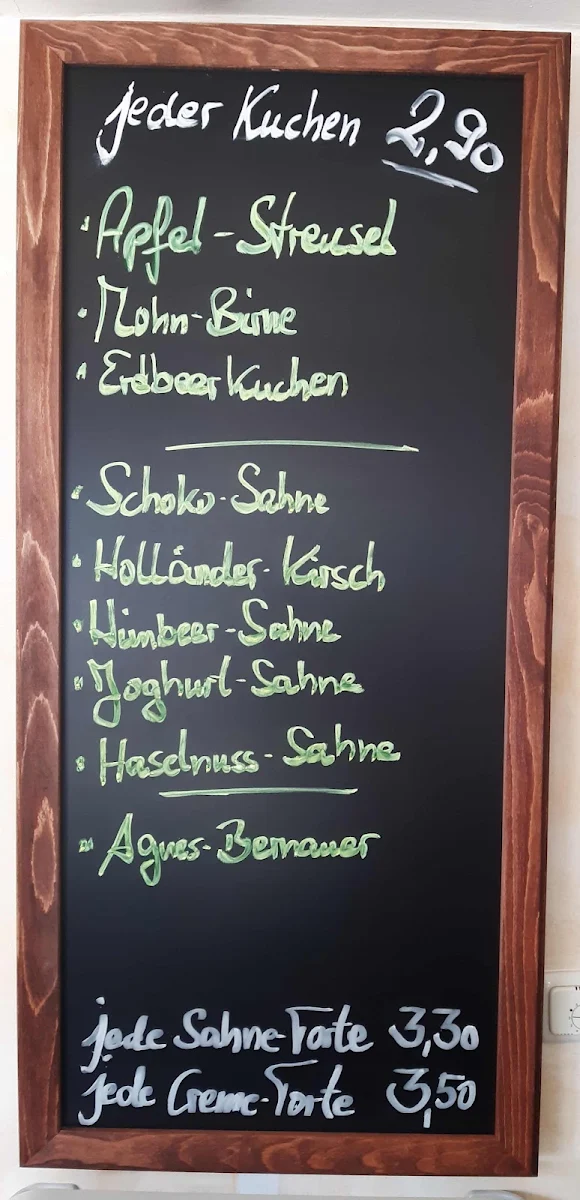 jeder Kuchen 2,90
· Apfel - Streusel
· Mohn - Birne
· Erdbeer Kuchen
· Schoko - Sahne
· Holländer - Kirsch
· Himbeer - Sahne
· Joghurt - Sahne
· Haselnuss - Sahne
· Agnes - Bernauer
jede Sahne-Torte 3,30
jede Creme-Torte 3,50